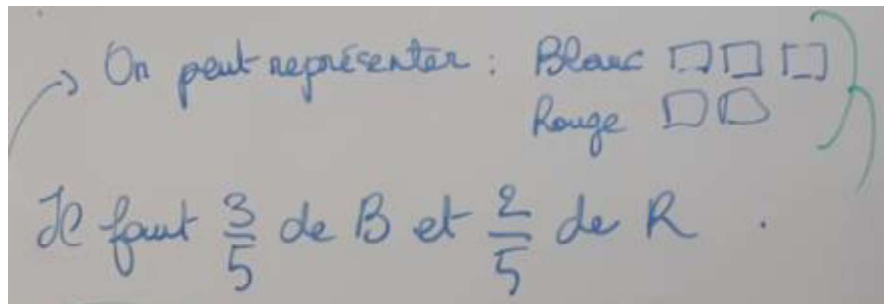 → On peut représenter : Blanc □ □ □
Rouge □ □
Il faut 3/5 de B et 2/5 de R .